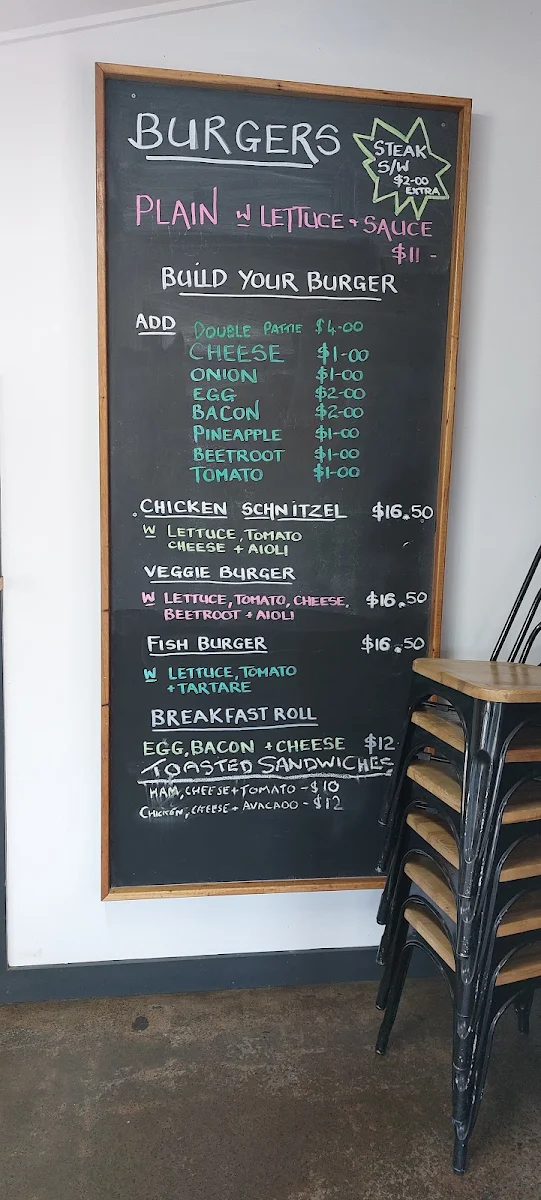 BURGERS
STEAK
S/W
$2-00
EXTRA
PLAIN W LETTUCE + SAUCE
$11 -
BUILD YOUR BURGER
ADD DOUBLE PATTIE $4-00
CHEESE $1-00
ONION $1-00
EGG $2-00
BACON $2-00
PINEAPPLE $1-00
BEETROOT $1-00
TOMATO $1-00
CHICKEN SCHNITZEL $16.50
W LETTUCE, TOMATO
CHEESE + AIOLI
VEGGIE BURGER
W LETTUCE, TOMATO, CHEESE, $16.50
BEETROOT + AIOLI
FISH BURGER $16.50
W LETTUCE, TOMATO
+ TARTARE
BREAKFAST ROLL
EGG, BACON + CHEESE $12
TOASTED SANDWICHES
HAM, CHEESE + TOMATO - $10
CHICKEN, CHEESE + AVACADO - $12